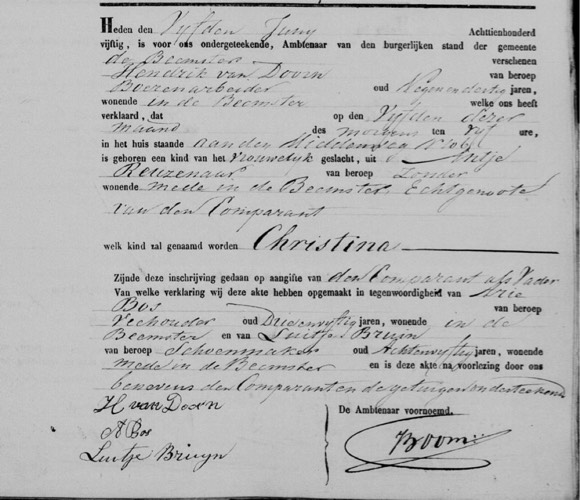 Heden den Vyfden Juny Achttienhonderd
vijftig, is voor ons ondergeteekende, Ambtenaar van den burgerlijken stand der gemeente
de Beemster verschenen
Hendrik van Doorn van beroep
Boerenarbeider oud Negenendertig jaren,
wonende in de Beemster welke ons heeft
verklaard, dat op den Vyfden dezer
maand des morgens ten vyf ure,
in het huis staande aan den Middenweg N
is geboren een kind van het Vrouwelyk geslacht, uit Antje
Reuzenaar van beroep Zonder
wonende mede in de Beemster Echtgenoote
van den Comparant
welk kind zal genaamd worden Christina
Zijnde deze inschrijving gedaan op aangifte van den Comparant als Vader
Van welke verklaring wij deze akte hebben opgemaakt in tegenwoordigheid van Arie
Bos van beroep
Veehouder oud Drieenvyftig jaren, wonende in de
Beemster en van Luitje Bruin
van beroep Schoenmaker oud Achtenvyftig jaren, wonende
mede in de Beemster en is deze akte na voorlezing door ons
benevens den Comparant en de getuigen onderteekend
H van Doorn
De Ambtenaar voornoemd.
A Bos
Luitje Bruyn